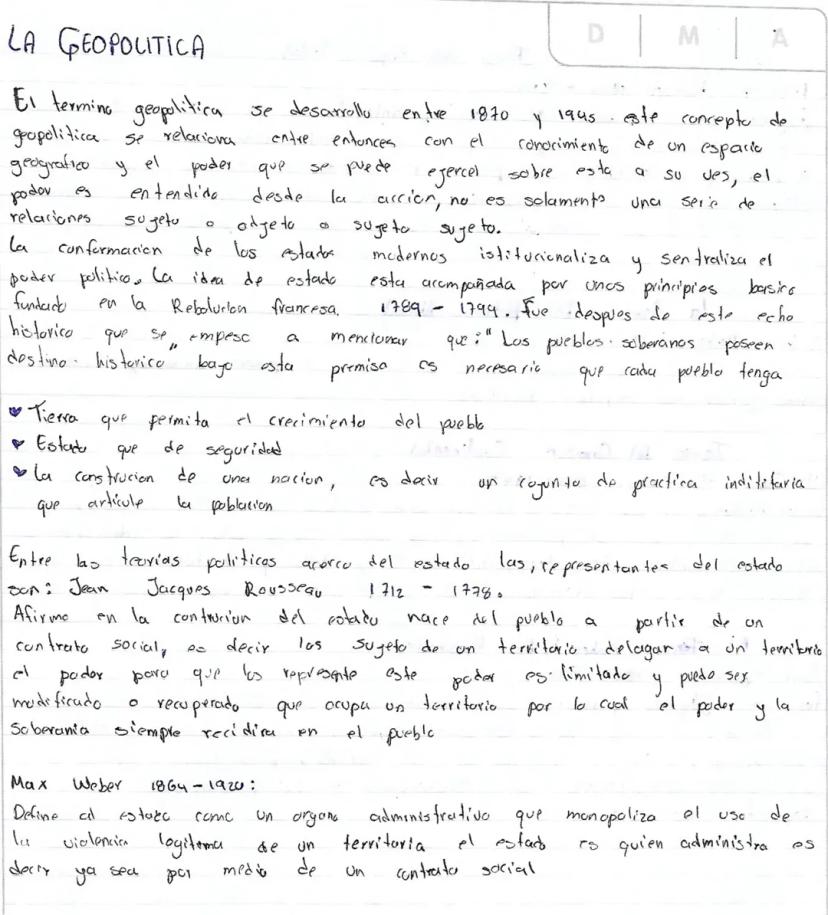 D | M | A
LA GEOPOLITICA
El termino geopolitica se desarrollo entre 1870 y 1945. este concepto de
geopolitica se relaciona entre entonces con el conocimiento de un espacio
geografico y el poder que se puede egercel sobre esta a su ves, el
poder es entendido desde la accion, no es solamente una serie de
relaciones sugeto o odgeto o sugeto sugeto.
La conformacion de los estados modernos istitucionaliza y sentraliza el
poder politico. La idea de estado esta acompañada por unos principios basico
fundado en la Rebolucion francesa. 1789 - 1799. Fue despues de este echo
historico que se empeso a mencionar que: "Los pueblos soberanos poseen
destino historico" bago esta premisa es necesario que cada pueblo tenga
Tierra que permita el crecimiento del pueblo
Estado que de seguridad
La construcion de una nacion, es decir un cogunto de practica inditifaria
que articule la poblacion
Entre las teorias politicas acerca del estado las, representantes del estado
son: Jean Jacques Rousseau 1712 - 1778.
Afirma en la contrucion del estado nace del pueblo a partir de un
contrato social, es decir los sugeto de un territorio delagar a un territorio
el poder para que los represente este poder es limitado y puede ser
modificado o recuperado que ocupa un territorio por lo cual el poder y la
Soberania siempre recidira en el pueblo
Max Weber 1864-1920:
Define al estado como un organo administrativo que monopoliza el uso de
la violencia legitema de un territoria el estado es quien administra es
decir ya sea por medio de un contrato social